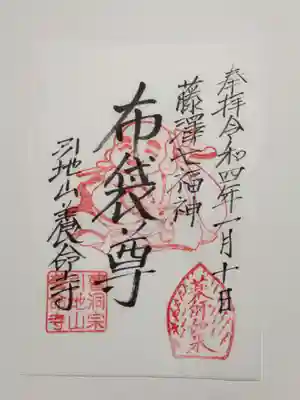 奉拝令和四年一月十日
藤澤七福神
布袋尊
引地山養命寺
薬師如来
曹洞宗
引地山
養命寺